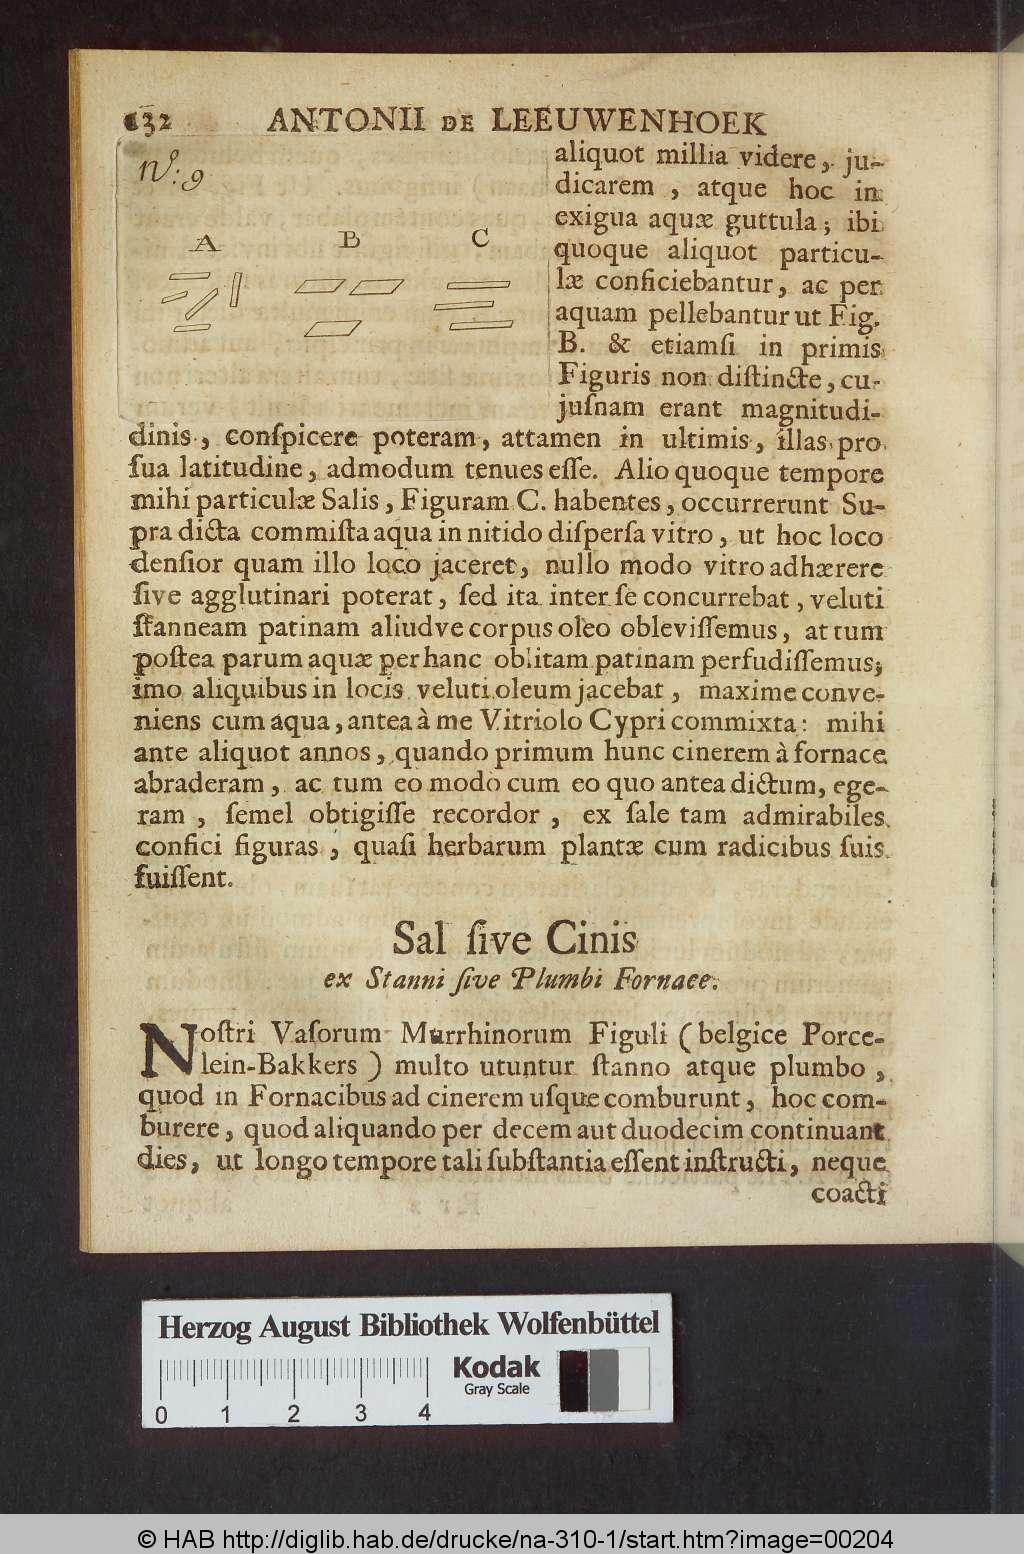 132 ANTONII DE LEEUWENHOEK
N.º: 9
A B C
aliquot millia videre, ju-
dicarem, atque hoc in
exigua aquæ guttula; ibi
quoque aliquot particu-
læ conficiebantur, ac per
aquam pellebantur ut Fig.
B. & etiamſi in primis
Figuris non diſtincte, cu-
juſnam erant magnitudi-
dinis, conſpicere poteram, attamen in ultimis, illas pro
ſua latitudine, admodum tenues eſſe. Alio quoque tempore
mihi particulæ Salis, Figuram C. habentes, occurrerunt Su-
pra dicta commiſta aqua in nitido diſperſa vitro, ut hoc loco
denſior quam illo loco jaceret, nullo modo vitro adhærere
ſive agglutinari poterat, ſed ita inter ſe concurrebat, veluti
ſtanneam patinam aliudve corpus oleo obleviſſemus, at tum
poſtea parum aquæ per hanc oblitam patinam perfudiſſemus;
imo aliquibus in locis veluti oleum jacebat, maxime conve-
niens cum aqua, antea à me Vitriolo Cypri commixta: mihi
ante aliquot annos, quando primum hunc cinerem à fornace
abraderam, ac tum eo modo cum eo quo antea dictum, ege-
ram, ſemel obtigiſſe recordor, ex ſale tam admirabiles
confici figuras, quaſi herbarum plantæ cum radicibus ſuis
fuiſſent.
Sal ſive Cinis
ex Stanni ſive Plumbi Fornace.
Noſtri Vaſorum Murrhinorum Figuli (belgice Porce-
lein-Bakkers) multo utuntur ſtanno atque plumbo,
quod in Fornacibus ad cinerem uſque comburunt, hoc com-
burere, quod aliquando per decem aut duodecim continuant
dies, ut longo tempore tali ſubſtantia eſſent inſtructi, neque
coacti
Herzog August Bibliothek Wolfenbüttel
Kodak
Gray Scale
0 1 2 3 4
© HAB http://diglib.hab.de/drucke/na-310-1/start.htm?image=00204